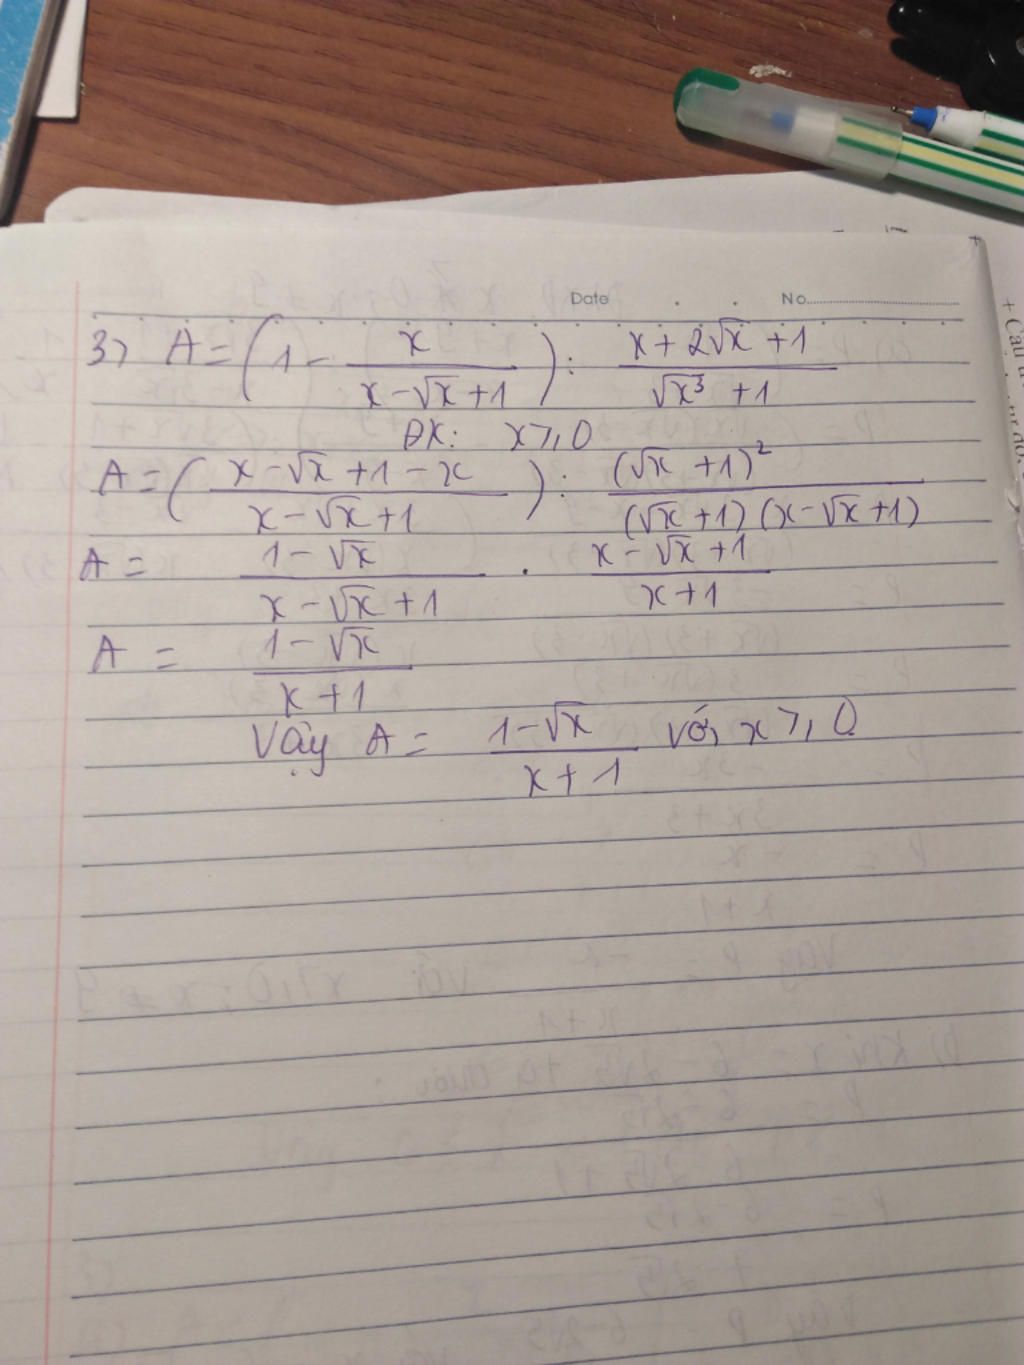 Date . . No.
3) A = (1 - x/(x - √x + 1)) : (x + 2√x + 1)/(√x³ + 1)
ĐK: x ≥ 0
A = ((x - √x + 1 - x)/(x - √x + 1)) : (√x + 1)²/((√x + 1)(x - √x + 1))
A = (1 - √x)/(x - √x + 1) . (x - √x + 1)/(x + 1)
A = (1 - √x)/(x + 1)
Vậy A = (1 - √x)/(x + 1) với x ≥ 0